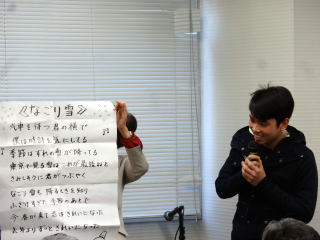 《なごり雪》
汽車を待つ君の横で
僕は時計を気にしてる
季節はずれの雪が降ってる
東京で見る雪はこれが最後ねと
さみしそうに君がつぶやく
なごり雪も降るときを知り
ふざけすぎた季節のあとで
今春が来て君はきれいになった
去年よりずっときれいになった